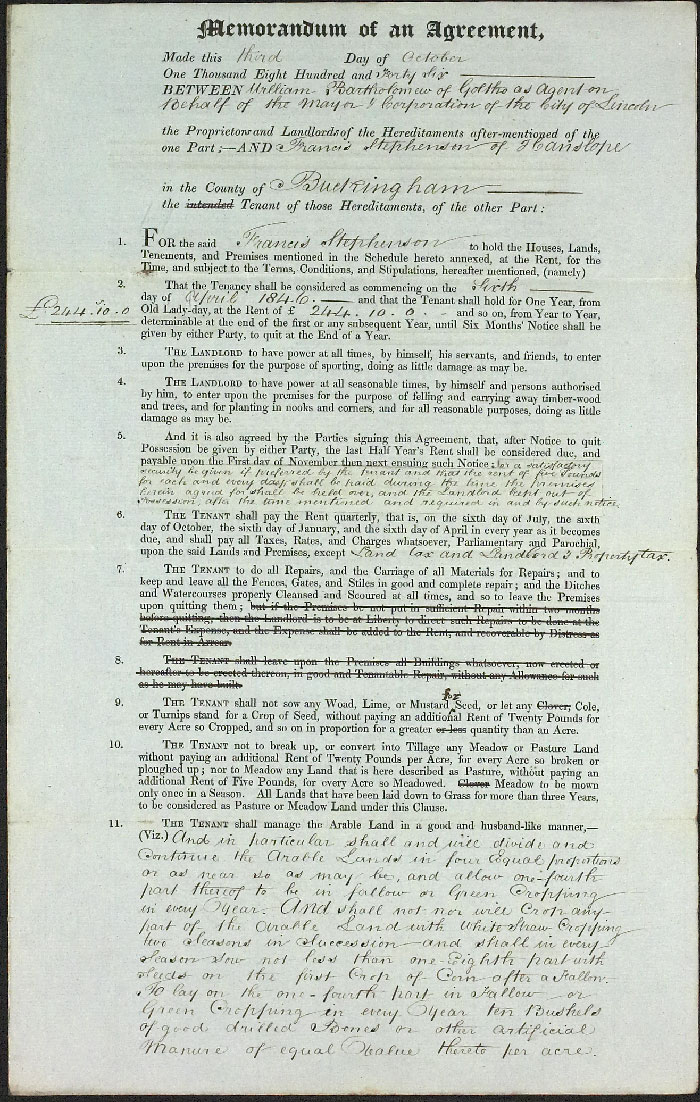 Memorandum of an Agreement,
Made this third Day of October
One Thousand Eight Hundred and Forty Six
BETWEEN William Bartholomew of Goltho as Agent on
Behalf of the Mayor & Corporation of the City of Lincoln
the Proprietors and Landlords of the Hereditaments after-mentioned of the
one Part;—AND Francis Stephenson of Hanslope
in the County of Buckingham
the intended Tenant of those Hereditaments, of the other Part:
1. FOR the said Francis Stephenson to hold the Houses, Lands,
Tenements, and Premises mentioned in the Schedule hereto annexed, at the Rent, for the
Time, and subject to the Terms, Conditions, and Stipulations, hereafter mentioned, (namely)
2. That the Tenancy shall be considered as commencing on the Sixth
day of April 1846. and that the Tenant shall hold for One Year, from
£244.10.0 Old Lady-day, at the Rent of £ 244.10.0 - and so on, from Year to Year,
determinable at the end of the first or any subsequent Year, until Six Months' Notice shall be
given by either Party, to quit at the End of a Year.
3. THE LANDLORD to have power at all times, by himself, his servants, and friends, to enter
upon the premises for the purpose of sporting, doing as little damage as may be.
4. THE LANDLORD to have power at all seasonable times, by himself and persons authorised
by him, to enter upon the premises for the purpose of felling and carrying away timber-wood
and trees, and for planting in nooks and corners, and for all reasonable purposes, doing as little
damage as may be.
5. And it is also agreed by the Parties signing this Agreement, that, after Notice to quit
Possession be given by either Party, the last Half Year's Rent shall be considered due, and
payable upon the First day of November then next ensuing such Notice; or a satisfactory
security be given if preferred by the tenant and that the rent of five Pounds
for each and every day, shall be paid during the time the premises
herein agreed for shall be held over, and the Landlord kept out of
Possession, after the time mentioned and required in and by such notice.
6. THE TENANT shall pay the Rent quarterly, that is, on the sixth day of July, the sixth
day of October, the sixth day of January, and the sixth day of April in every year as it becomes
due, and shall pay all Taxes, Rates, and Charges whatsoever, Parliamentary and Parochial,
upon the said Lands and Premises, except Land tax and Landlord's Property tax.
7. THE TENANT to do all Repairs, and the Carriage of all Materials for Repairs; and to
keep and leave all the Fences, Gates, and Stiles in good and complete repair; and the Ditches
and Watercourses properly Cleansed and Scoured at all times, and so to leave the Premises
upon quitting them; but if the Premises be not put in sufficient Repair within two months
before quitting, then the Landlord is to be at Liberty to direct such Repairs to be done at the
Tenant's Expense, and the Expense shall be added to the Rent, and recoverable by Distress as
for Rent in Arrear.
8. THE TENANT shall leave upon the Premises all Buildings whatsoever, now erected or
hereafter to be erected thereon, in good and Tenantable Repair, without any Allowance for such
as he may have built.
9. THE TENANT shall not sow any Woad, Lime, or Mustard for Seed, or let any Clover, Cole,
or Turnips stand for a Crop of Seed, without paying an additional Rent of Twenty Pounds for
every Acre so Cropped, and so on in proportion for a greater or less quantity than an Acre.
10. THE TENANT not to break up, or convert into Tillage any Meadow or Pasture Land
without paying an additional Rent of Twenty Pounds per Acre, for every Acre so broken or
ploughed up; nor to Meadow any Land that is here described as Pasture, without paying an
additional Rent of Five Pounds, for every Acre so Meadowed. Clover Meadow to be mown
only once in a Season. All Lands that have been laid down to Grass for more than three Years,
to be considered as Pasture or Meadow Land under this Clause.
11. THE TENANT shall manage the Arable Land in a good and husband-like manner,—
(Viz.) And in particular shall and will divide and
Continue the Arable Lands in four Equal proportions
or as near so as may be, and allow one-fourth
part thereof to be in fallow or Green Cropping
in every Year. And shall not nor will Crop any
part of the Arable Land with White Straw Cropping
two Seasons in Succession and shall in every
Season sow not less than one-Eighth part with
Seeds on the first Crop of Corn after a Fallow.
To lay on the one-fourth part in Fallow or
Green Cropping in every Year ten Bushels
of good drilled Bones or other artificial
Manure of equal Value thereto per acre.